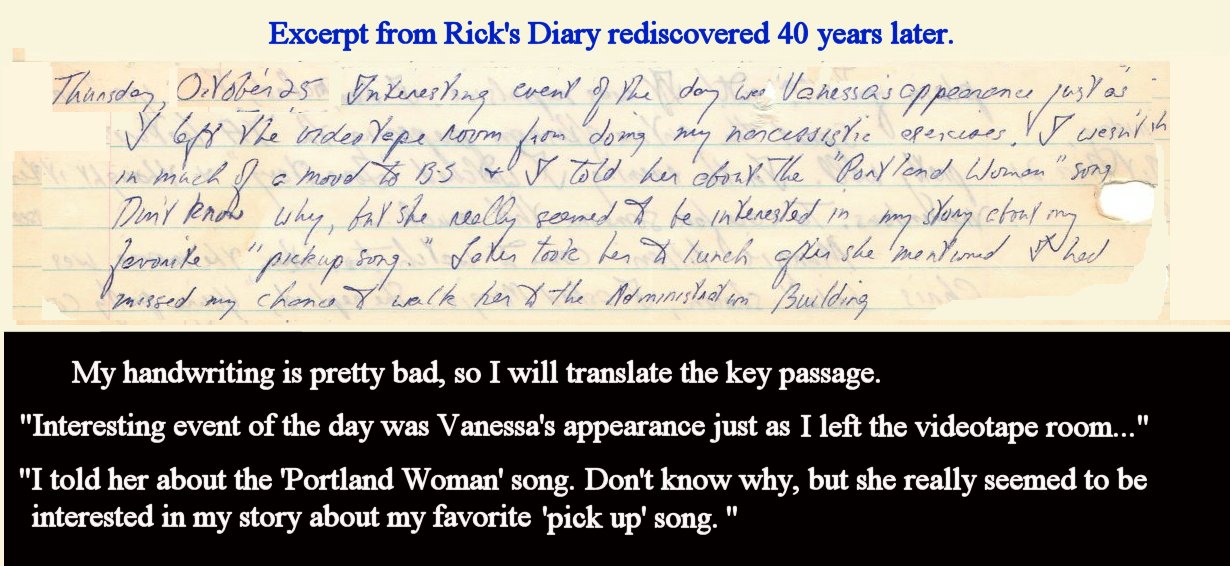 Excerpt from Rick's Diary rediscovered 40 years later.
Thursday, October 25 Interesting event of the day was Vanessa's appearance just as
I left the videotape room from doing my narcissistic exercises. I wasn't in
in much of a mood to B-S & I told her about the "Portland Woman" song
Don't know why, but she really seemed to be interested in my story about my
favorite "pickup song." Later took her to lunch after she mentioned I had
missed my chance to walk her to the Administration Building
My handwriting is pretty bad, so I will translate the key passage.
"Interesting event of the day was Vanessa's appearance just as I left the videotape room..."
"I told her about the 'Portland Woman' song. Don't know why, but she really seemed to be
interested in my story about my favorite 'pick up' song. "